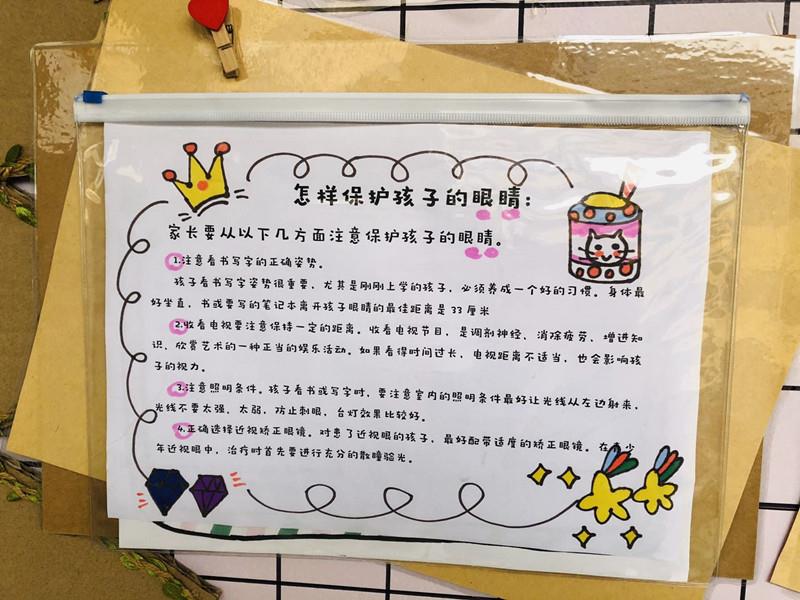 怎样保护孩子的眼睛:
家长要从以下几方面注意保护孩子的眼睛。
1.注意看书写字的正确姿势。
孩子看书写字姿势很重要,尤其是刚刚上学的孩子,必须养成一个好的习惯。身体最
好坐直,书或要写的笔记本离开孩子眼睛的最佳距离是33厘米
2.收看电视要注意保持一定的距离。收看电视节目,是调剂神经、消除疲劳、增进知
识、欣赏艺术的一种正当的娱乐活动。如果看得时间过长,电视距离不适当,也会影响孩
子的视力。
3.注意照明条件。孩子看书或写字时,要注意室内的照明条件最好让光线从左边射来,
光线不要太强、太弱,防止刺眼,台灯效果比较好。
4.正确选择近视矫正眼镜。对患了近视眼的孩子,最好配带适度的矫正眼镜。在青少
年近视眼中,治疗时首先要进行充分的散瞳验光。